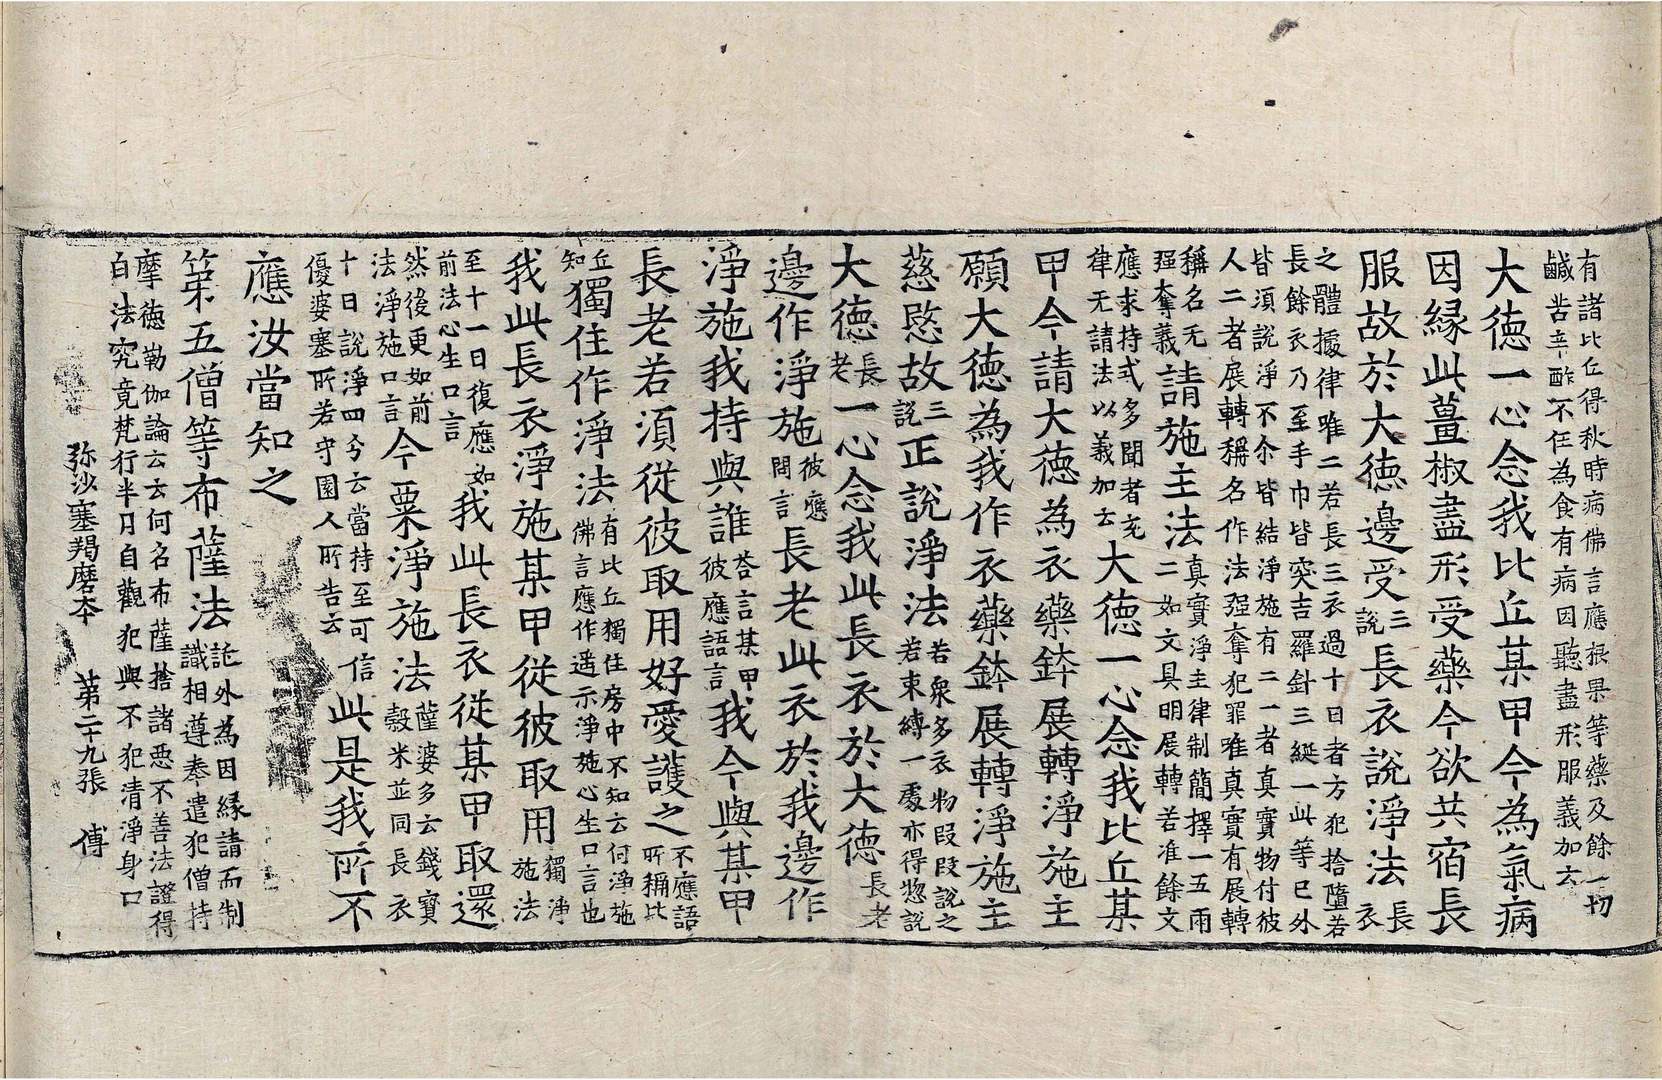 有諸比丘得秋時病佛言應根果等藥及餘一切
鹹苦辛酢不任為食有病因聽盡形服義加云
大德一心念我比丘某甲今為氣病
因緣此薑椒盡形受藥今欲共宿長
服故於大德邊受三說長衣說淨法長衣
之體據律唯二若長三衣過十日者方犯捨墮若
長餘衣乃至手巾皆突吉羅針三綖一此等已外
皆須說淨不尒皆結淨施有二一者真實物付彼
人二者展轉稱名作法强奪犯罪唯真實有展轉
稱名无强奪義請施主法真實淨主律制簡擇一五兩二如文具明展轉若准餘文
應求持戒多聞者充律无請法以義加云大德一心念我比丘某
甲今請大德為衣藥鉢展轉淨施主
願大德為我作衣藥鉢展轉淨施主
慈愍故三說正說淨法若衆多衣物段段說之若束縛一處亦得惣說
大德長老一心念我此長衣於大德長老
邊作淨施彼應問言長老此衣於我邊作
淨施我持與誰荅言某甲彼應語言我今與某甲
長老若須從彼取用好愛護之不應語所稱比
丘知獨住作淨法有比丘獨住房中不知云何淨施佛言應作遥示淨施心生口言也
我此長衣淨施某甲從彼取用獨淨施法
至十一日復應如前法心生口言我此長衣從某甲取還
然後更如前法淨施口言今粟淨施法薩婆多云錢寶穀米並同長衣
十日說淨四分云當持至可信優婆塞所若守園人所告云此是我所不
應汝當知之
第五僧等布薩法託外為因緣請而制識相遵奉遣犯僧持
摩德勒伽論云云何名布薩捨諸惡不善法證得
白法究竟梵行半月自觀犯與不犯清淨身口
弥沙塞羯磨本 第二十九張 傅